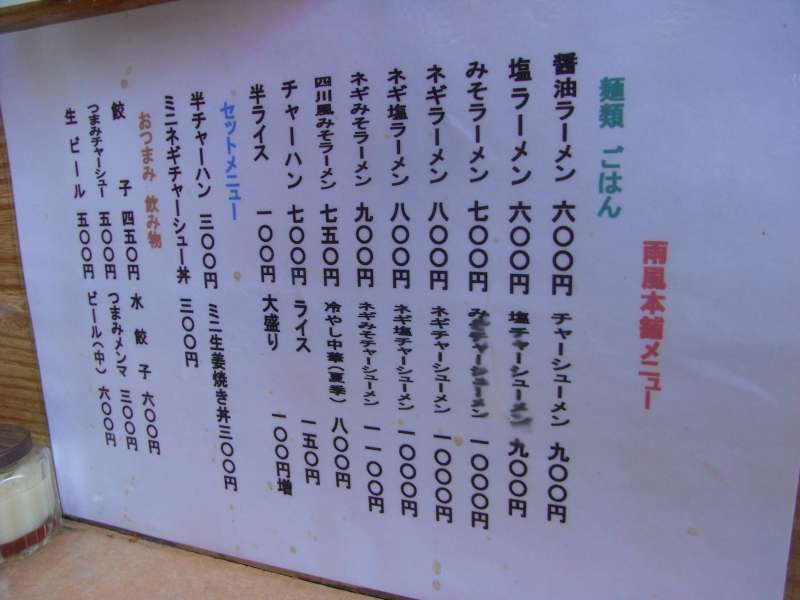 雨風本舗メニュー
麺類 ごはん
醤油ラーメン 六〇〇円 チャーシューメン 九〇〇円
塩ラーメン 六〇〇円 塩チャーシューメン 九〇〇円
みそラーメン 七〇〇円 みそチャーシューメン 一〇〇〇円
ネギラーメン 八〇〇円 ネギチャーシューメン 一〇〇〇円
ネギ塩ラーメン 八〇〇円 ネギ塩チャーシューメン 一〇〇〇円
ネギみそラーメン 九〇〇円 ネギみそチャーシューメン 一一〇〇円
四川風みそラーメン 七五〇円 冷やし中華(夏季) 八〇〇円
チャーハン 七〇〇円 ライス 一五〇円
半ライス 一〇〇円 大盛り 一〇〇円増
セットメニュー
半チャーハン 三〇〇円 ミニ生姜焼き丼 三〇〇円
ミニネギチャーシュー丼 三〇〇円
おつまみ 飲み物
餃子 四五〇円 水餃子 六〇〇円
つまみチャーシュー 五〇〇円 つまみメンマ 三〇〇円
生ビール 五〇〇円 ビール(中) 六〇〇円